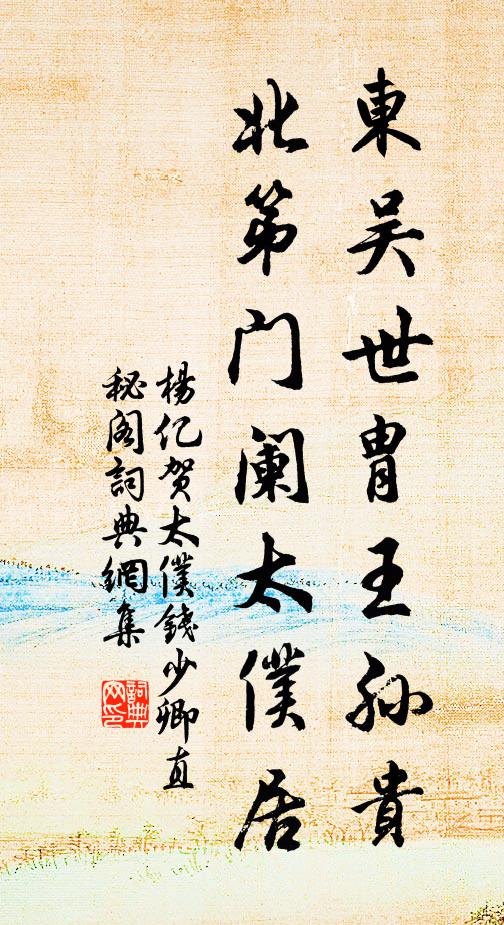 東吴世胄王孙貴
北第门阑太僕居
楊亿贺太僕錢少卿直
秘阁詞典網集
詞典
网印